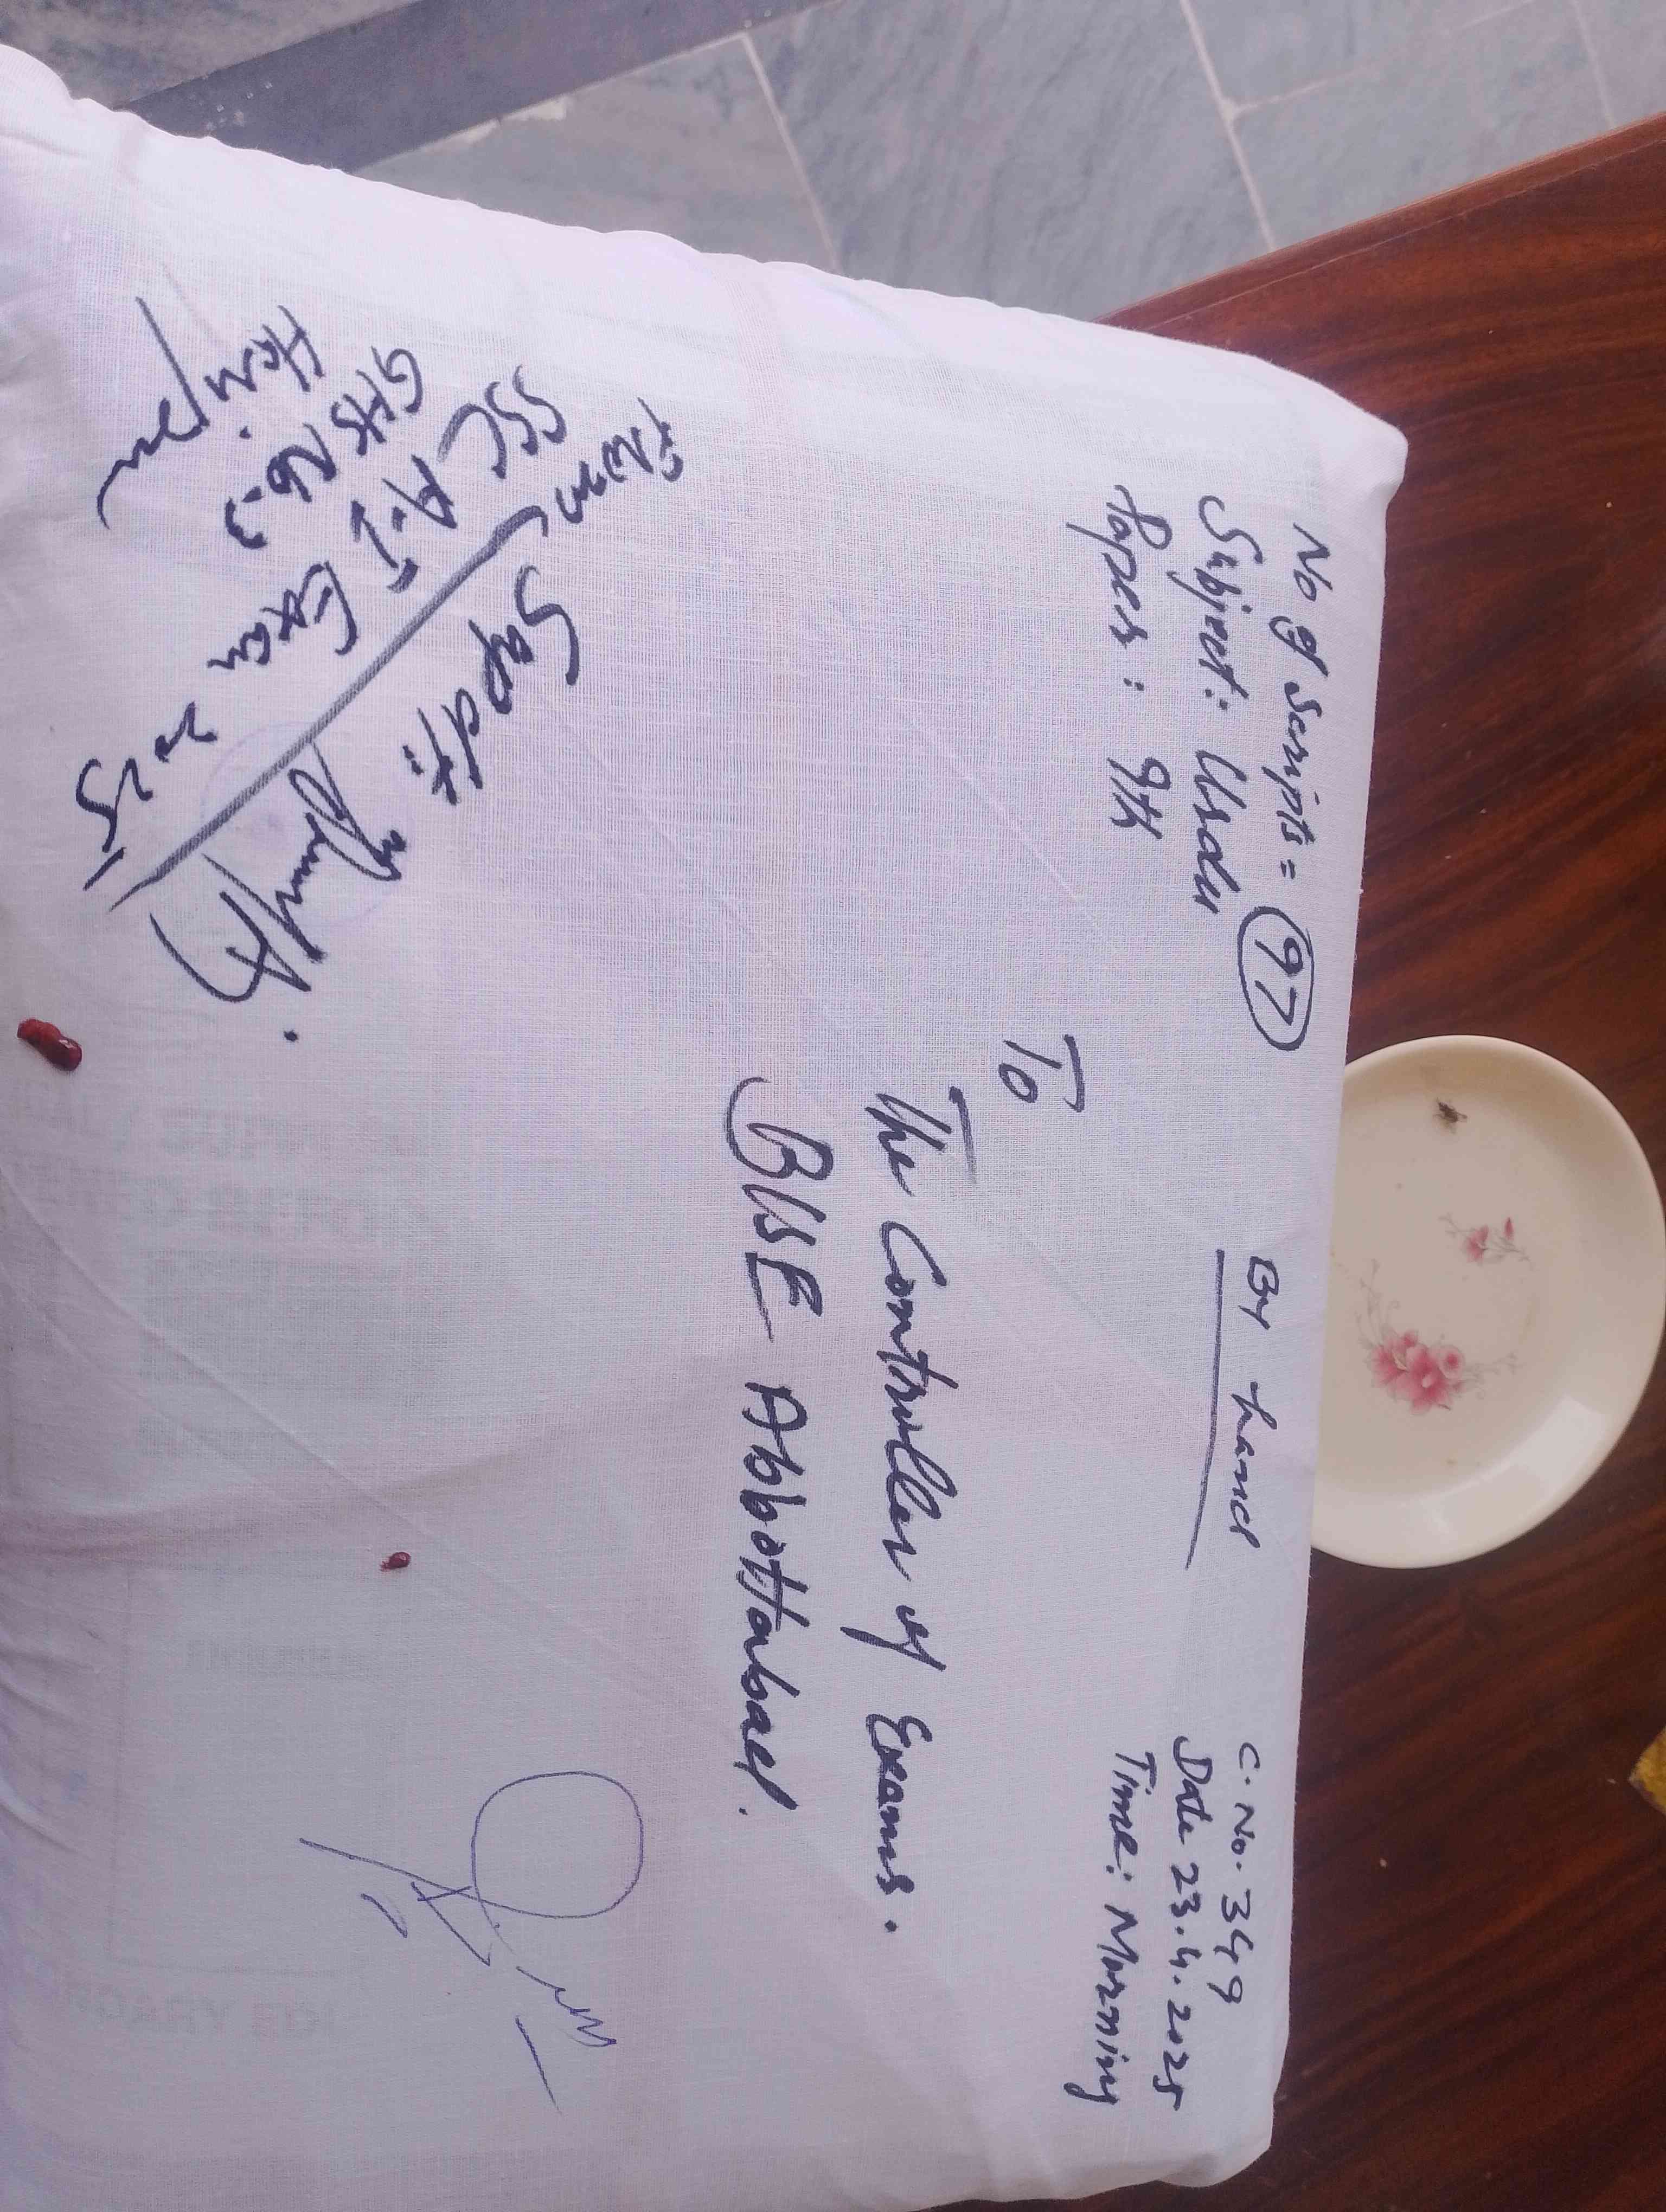 No of scripts = 97
Subject: Urdu
Paper: 9th
By hand
C. No. 349
Date 23.4.2025
Time: Morning
To
The Controller of Exams.
BISE Abbottabad.
From
Supdtt:
SSC A-I Exam 2025
GHS No-3
Haripur